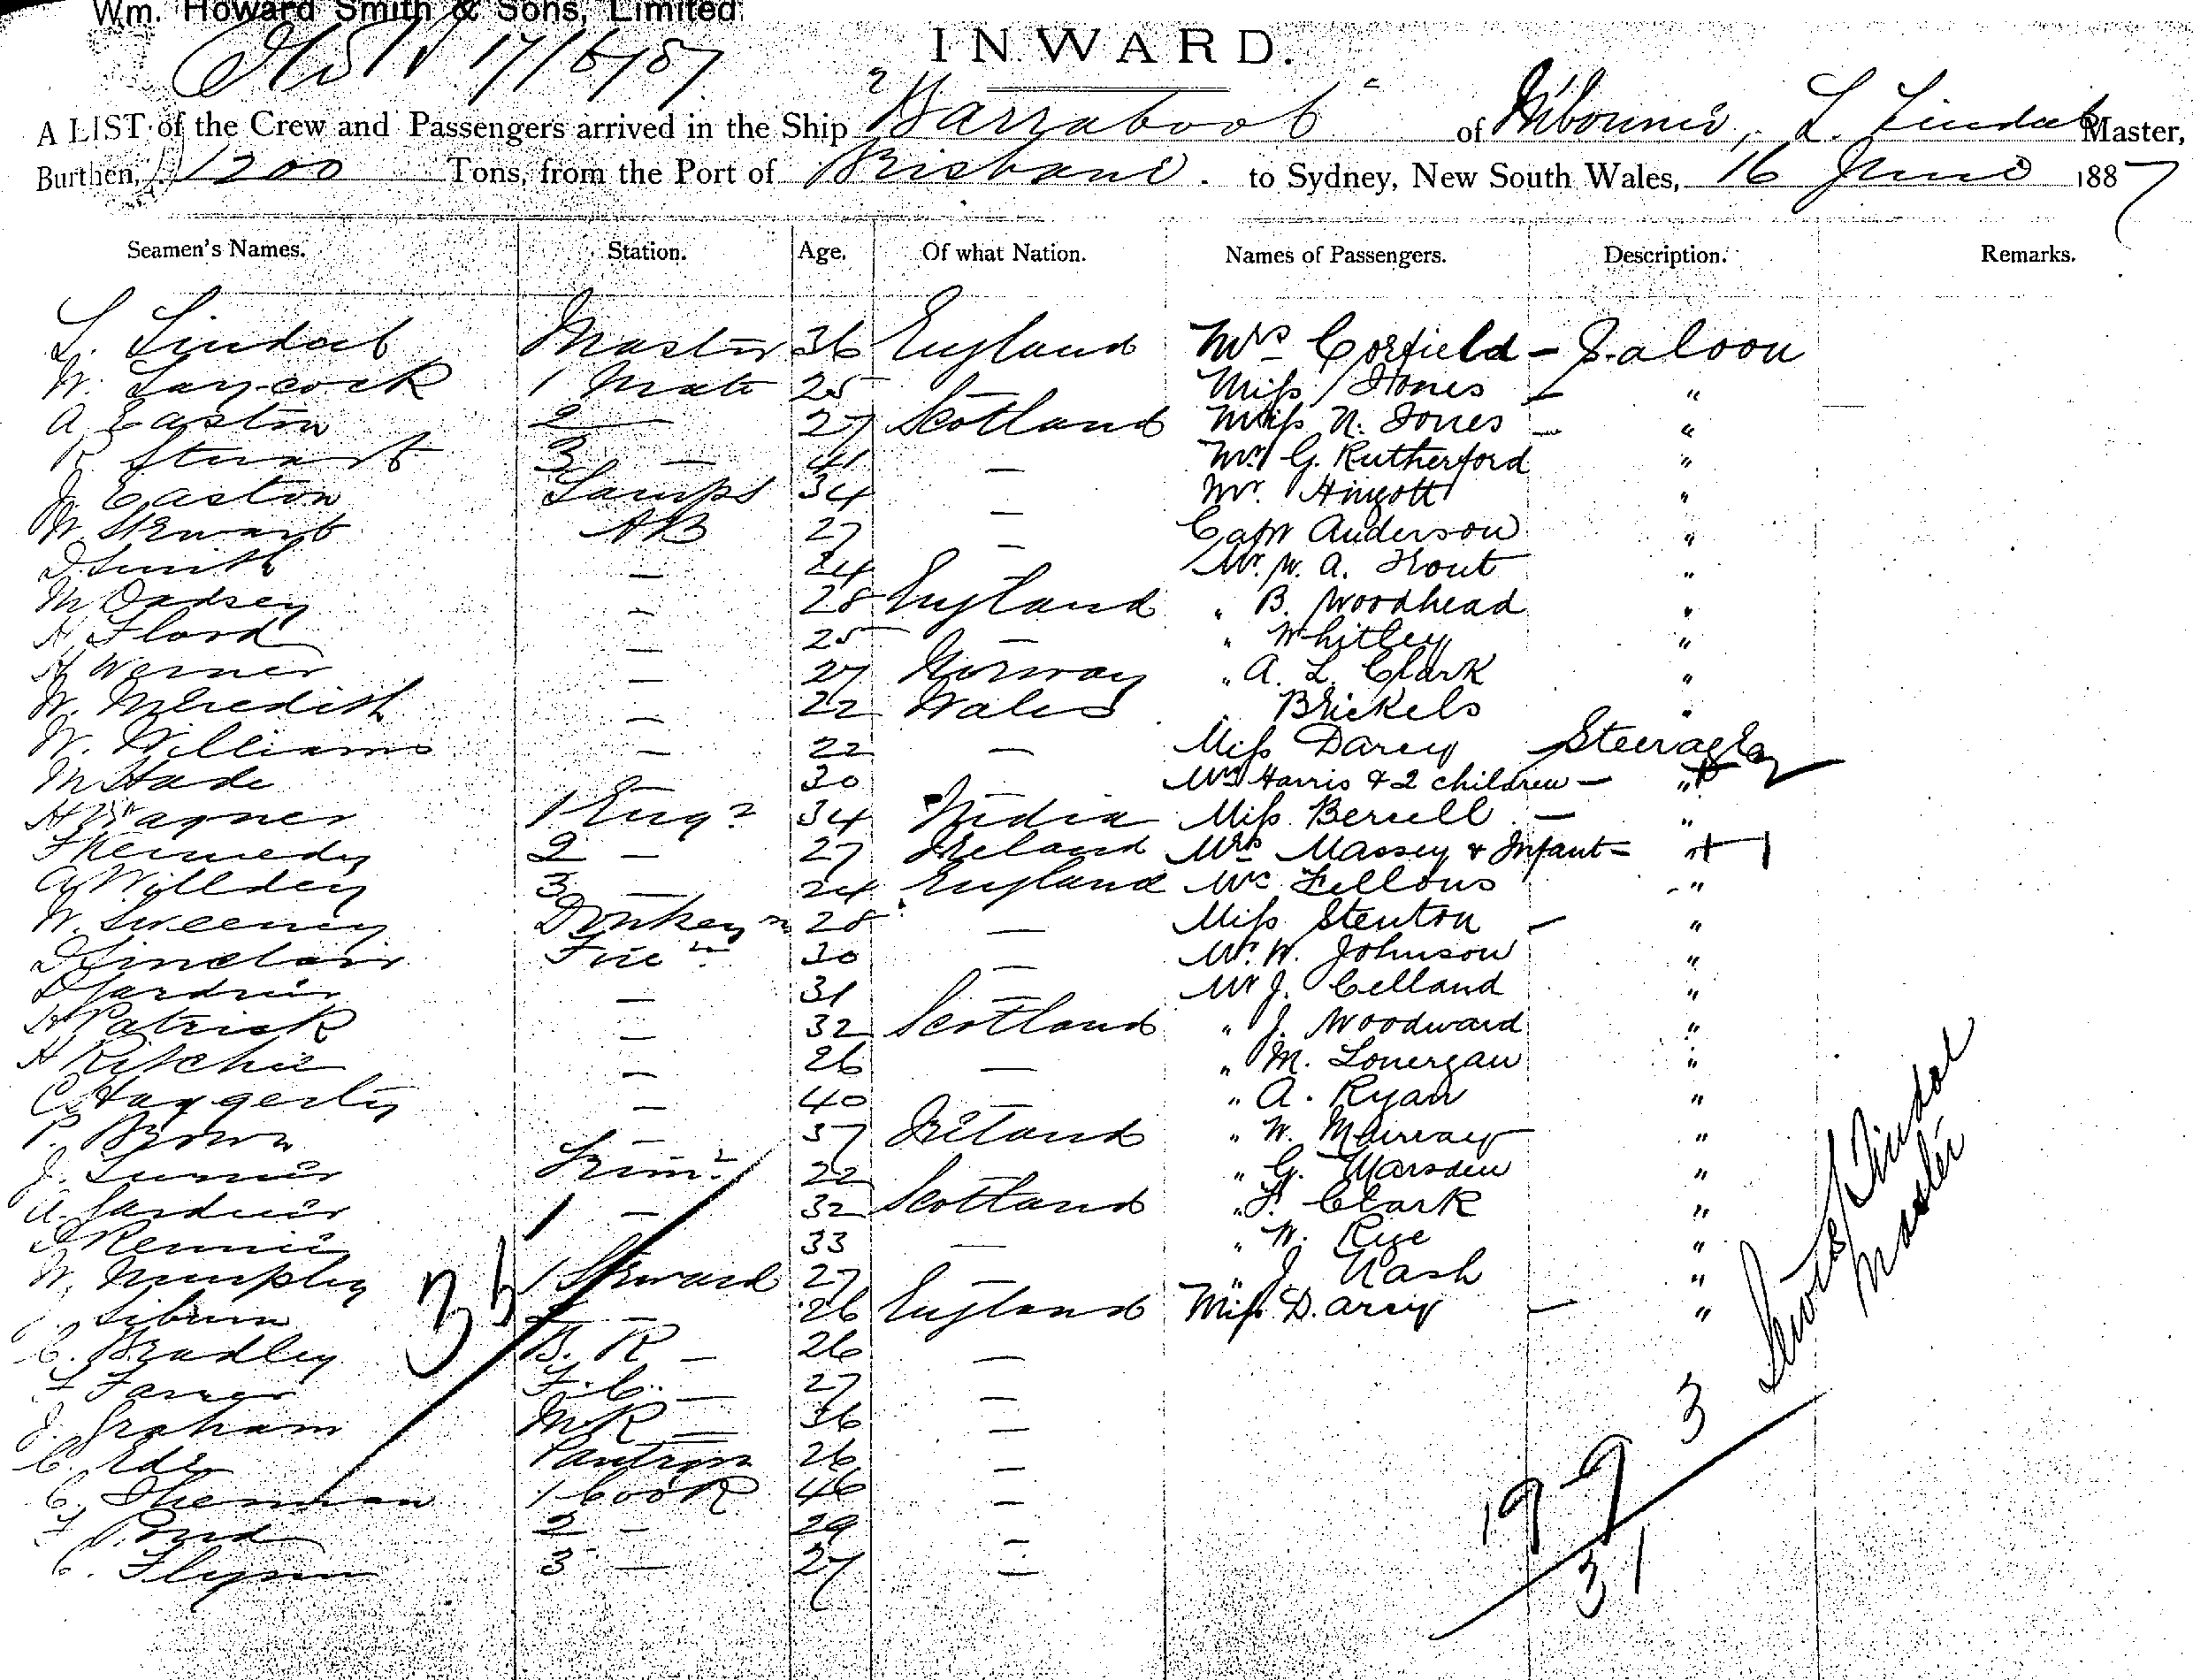 Wm. Howard Smith & Sons, Limited.
17/6/87
INWARD.
A LIST of the Crew and Passengers arrived in the Ship "Barrabool" of Melbourne, L. Lindal Master,
Burthen, 1200 Tons, from the Port of Brisbane. to Sydney, New South Wales, 16 June 1887
Seamen's Names. Station. Age. Of what Nation. Names of Passengers. Description. Remarks.
L. Lindal Master 36 England Mrs Corfield - Saloon
W. Laycock 1 Mate 25 — Miss Jones - "
A Easton 2 — 27 Scotland Miss N. Jones - "
R Stuart 3 — 41 — Mr G. Rutherford "
J. Easton Lamps 34 — Mr. "
W. Stewart AB 27 — Capt Anderson "
D Smith — 24 — Mr. W. A. Trout "
M — 28 England " B. Woodhead "
H. — 25 — " Whitley "
Werner — 27 Norway " A. L. Clark "
W. Meredith — 22 Wales "
W. Williams — 22 — Miss Darcy Steerage
M Hade 30 — Mrs Harris & 2 children - "
H Wagner 1 Engr 34 India Miss -  "
F Kennedy 2 — 27 Ireland Mrs Massey & Infant - "
A Willdey 3 — 24 England Mr Fellows "
W. Sweeney Donkeym 28 — Miss Stenton - "
D Sinclair Firem 30 — Mr. W. Johnson "
D Gardner — 31 — Mr J. Celland "
H Patrick — 32 Scotland " J. Woodward "
A Ritchie — 26 — " M. Lonergan "
C Haggerty — 40 — " A. Ryan "
P. Brown — 37 Ireland " W. Murray "
J. Trimr 22 — " G. Marsden "
A. Gardner 1 — 32 Scotland " F. Clark "
Rennie 33 — " W. Rye "
W. Murphy 1 Steward 27 — " J. Nash "
26 England Miss D. arcy - "
C. Bradley B. R — 26 —
F F. C. — 27 —
J. Graham M R — 36 —
C. Ede Pantrym 26 —
C. Sherman 1 Cook 46 —
F Pond 2 — 29 —
C. Flynn 3 — 27 —
36
Lewis Lindal
Master
3
19 9
31